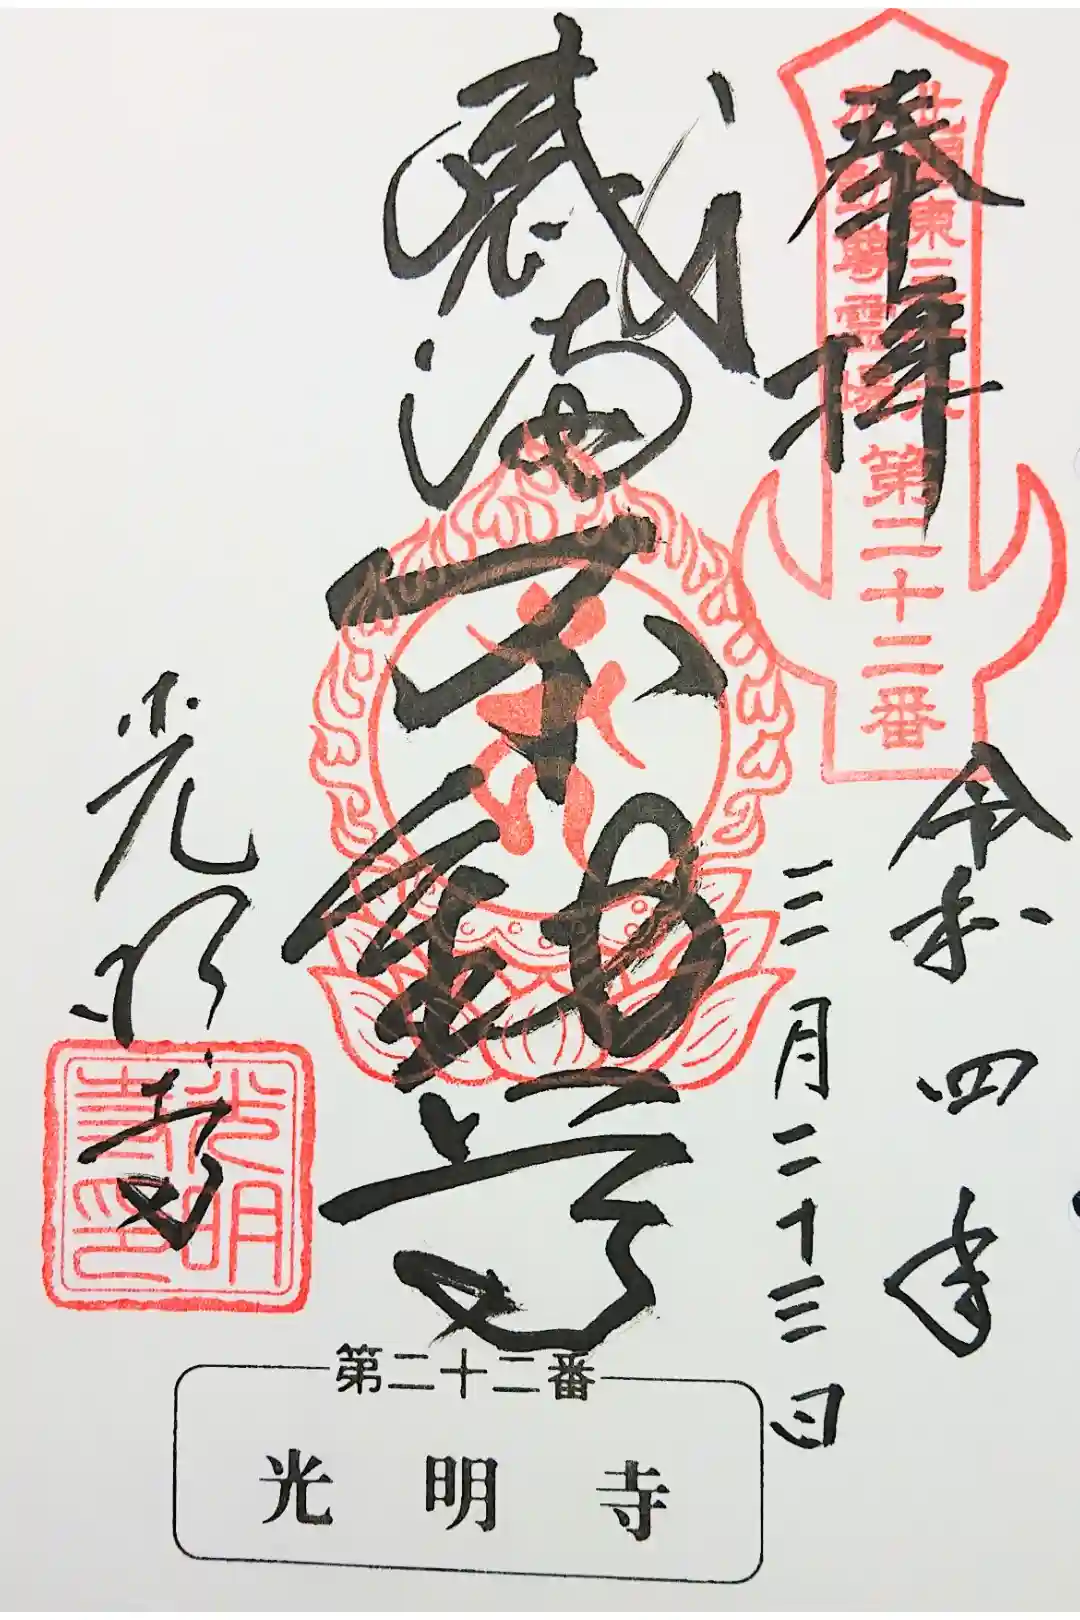 奉拝
北関東三十六
不動尊霊場
第二十二番
令和四年
三月二十三日
感満不動尊
光明寺
光明
寺印
第二十二番
光明寺